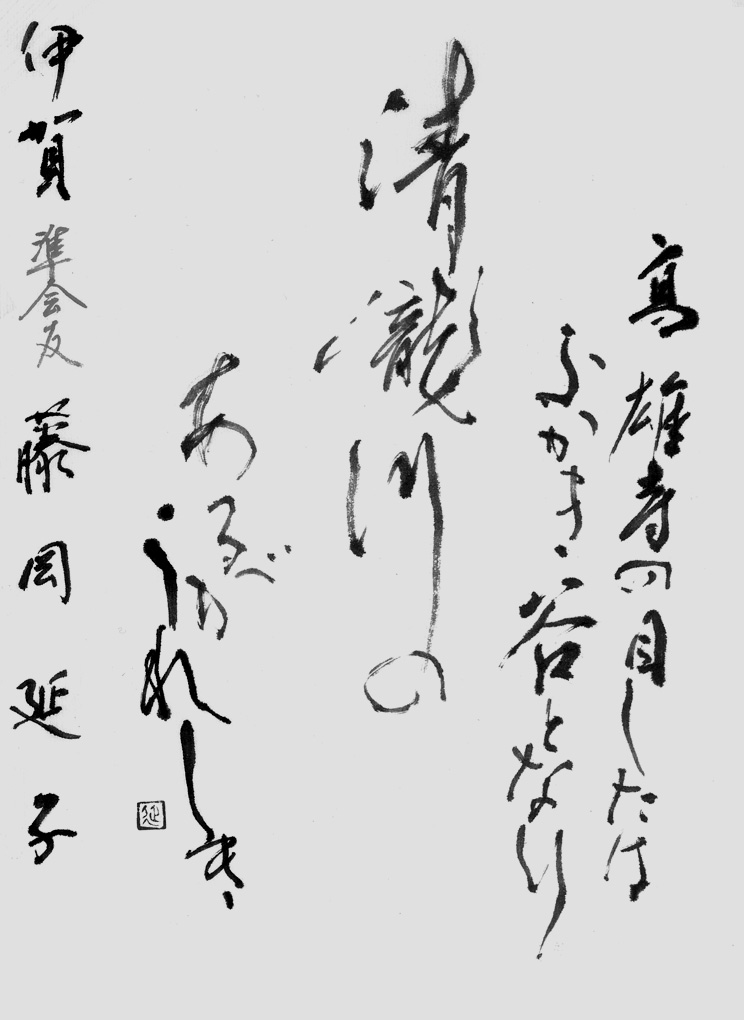 高雄寺の目したは
ふかき谷となり
清瀧川の
あるがうれしき
伊賀 準会友 藤岡延子
延